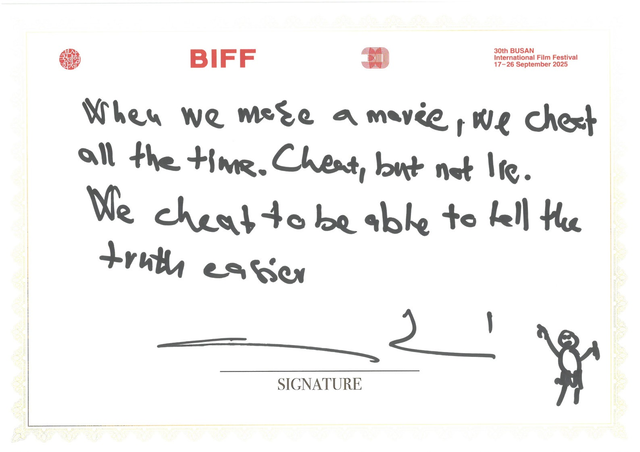 BIFF
30th BUSAN
International Film Festival
17–26 September 2025
When we make a movie, we cheat
all the time. Cheat, but not lie.
We cheat to be able to tell the
truth easier
SIGNATURE